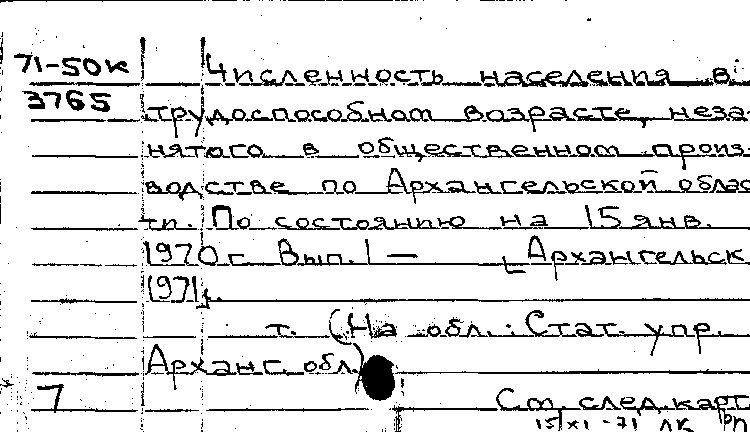 71-50к Численность населения в
3765 трудоспособном возрасте, неза-
нятого в общественном произ-
водстве по Архангельской облас
ти. По состоянию на 15 янв.
1970 г. Вып. 1 — Архангельск
1971
т. (На обл.: Стат. упр.
Арханг. обл.)
7 См. след. карт
15/XI-71 ЛК